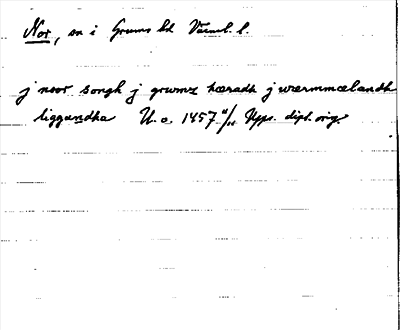 Nor, sn i Grums hd Värml. l.
j noor songh j grwmz hæradh j wærmmælandh
liggandha U. o. 1457 4/11 Upps. dipl. orig.